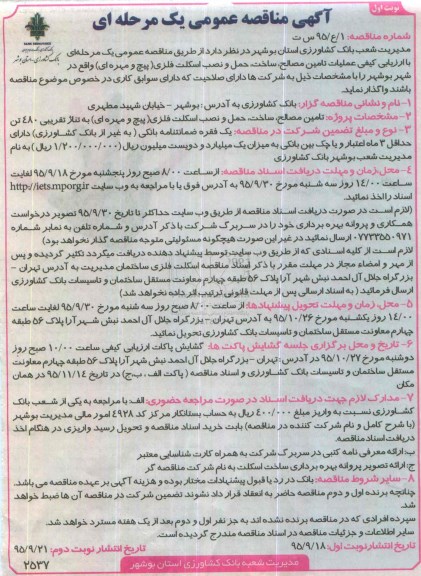 نوبت اول
آگهی مناقصه عمومی یک مرحله ای
شماره مناقصه: ۱/ع/۹۵ س ت
مدیریت شعب بانک کشاورزی استان بوشهر در نظر دارد از طریق مناقصه عمومی یک مرحله‌ای
با ارزیابی کیفی عملیات تامین مصالح، ساخت، حمل و نصب اسکلت فلزی (پیچ و مهره ای) واقع در
شهر بوشهر را با مشخصات ذیل به شرکت ها دارای صلاحیت که دارای سوابق کاری در خصوص موضوع مناقصه
باشند، واگذار نماید.
۱- نام و نشانی مناقصه گزار: بانک کشاورزی به آدرس: بوشهر - خیابان شهید مطهری
۲- مشخصات پروژه: تامین مصالح، ساخت، حمل و نصب اسکلت فلزی (پیچ و مهره ای) به تناژ تقریبی ۴۸۰ تن
۳- نوع و مبلغ تضمین شرکت در مناقصه: یک فقره ضمانتنامه بانکی ( به غیر از بانک کشاورزی) دارای
حداقل ۳ ماه اعتبار و یا چک بین بانکی به میزان یک میلیارد و دویست میلیون ریال (۱/۲۰۰/۰۰۰/۰۰۰) ریال) به نام
مدیریت شعب بوشهر بانک کشاورزی
۴- محل، زمان و مهلت دریافت اسناد مناقصه: از ساعت ۸/۰۰ صبح روز پنجشنبه مورخ ۹۵/۹/۱۸ لغایت
ساعت ۱۴/۰۰ روز سه شنبه مورخ ۹۵/۹/۳۰ به آدرس فوق و یا با مراجعه به وب سایت http://iets.mporg.ir
اسناد را اخذ نمائید.
(لازم است در صورت دریافت اسناد مناقصه از طریق وب سایت حداکثر تا تاریخ ۹۵/۹/۳۰ تصویر درخواست
همکاری و پروانه بهره برداری خود را در سربرگ شرکت با ذکر آدرس و شماره تلفن به نمابر شماره
۰۷۷۳۳۵۵۰۹۷۱ ارسال نمائید در غیر این صورت هیچگونه مسئولیتی متوجه مناقصه گذار نخواهد بود)
لازم است از کلیه اسنادی که از طریق وب سایت توسط پیشنهاد دهنده دریافت میگردد تکثیر گردیده و پس
از مهر و امضاء مجاز در مهلت مقرر با ذکر اسناد مناقصه اسکلت فلزی ساختمان مدیریت به آدرس تهران -
بزرگراه جلال آل احمد نبش شهر آرا پلاک ۵۶ طبقه چهارم معاونت مستقل ساختمان و تاسیسات بانک کشاورزی
ارسال فرمائید ( به اسناد ارسالی پس از مهلت قانونی ترتیب اثر داده نخواهد شد)
۵- محل، زمان و مهلت تحویل پیشنهادها: از ساعت ۸/۰۰ صبح روز سه شنبه مورخ ۹۵/۹/۳۰ لغایت ساعت
۱۴/۰۰ روز یکشنبه مورخ ۹۵/۱۰/۲۶ به آدرس تهران - بزرگراه جلال آل احمد نبش شهر آرا پلاک ۵۶ طبقه
چهارم معاونت مستقل ساختمان و تاسیسات بانک کشاورزی تحویل نمائید.
۶- تاریخ و محل برگزاری جلسه گشایش پاکت ها: گشایش پاکات ارزیابی کیفی ساعت ۱۰/۰۰ صبح روز
دوشنبه مورخ ۹۵/۱۰/۲۷ در آدرس: تهران - بزرگراه جلال آل احمد نبش شهر آرا پلاک ۵۶ طبقه چهارم معاونت
مستقل ساختمان و تاسیسات بانک کشاورزی و اسناد مناقصه ( پاکت الف، ب، ج) در تاریخ ۹۵/۱۱/۱۴ در همان
مکان
۷- مدارک لازم جهت دریافت اسناد در صورت مراجعه حضوری: الف: با مراجعه به یکی از شعب بانک
کشاورزی نسبت به واریز مبلغ ۴۰۰/۰۰۰ ریال به حساب بستانکار مرکز کد ۴۹۲۸ امور مالی مدیریت بوشهر
(با شرح کامل و نام شرکت کننده در مناقصه) بابت خرید اسناد مناقصه و تحویل رسید واریزی در هنگام اخذ
دریافت اسناد مناقصه.
ب: ارائه معرفی نامه کتبی در سربرگ شرکت به همراه کارت شناسایی معتبر
ج: ارائه تصویر پروانه بهره برداری ساخت اسکلت به نام شرکت مناقصه گر
۸- سایر شروط مناقصه: بانک در رد یا قبول پیشنهادات مختار بوده و هزینه آگهی بر عهده مناقصه می باشد.
چنانچه برنده اول و دوم مناقصه حاضر به انعقاد قرار داد نشوند تضمین شرکت در مناقصه آن ها ضبط خواهد
شد.
سپرده افرادی که در مناقصه برنده نشده اند به جز نفر اول و دوم بعد از یک هفته مسترد خواهد شد.
سایر اطلاعات و جزئیات مناقصه در اسناد مناقصه مندرج گردیده است.
تاریخ انتشار نوبت اول: ۹۵/۹/۱۸ تاریخ انتشار نوبت دوم: ۹۵/۹/۲۱
مدیریت شعبه بانک کشاورزی استان بوشهر
۲۵۳۷